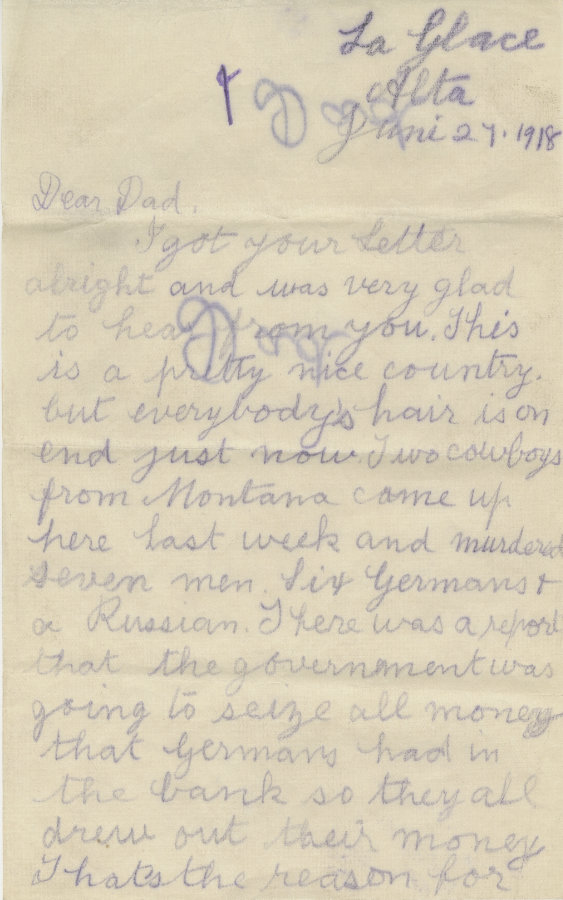 La Glace
Alta
Juni 27. 1918
Dear Dad.
I got your Letter
alright and was very glad
to hear from you. This
is a pretty nice country.
but everybody's hair is on
end just now. Two cowboys
from Montana came up
here last week and murdered
seven men. Six Germans &
a Russian. There was a report
that the government was
going to seize all money
that Germans had in
the bank so they all
drew out their money
Thats the reason for